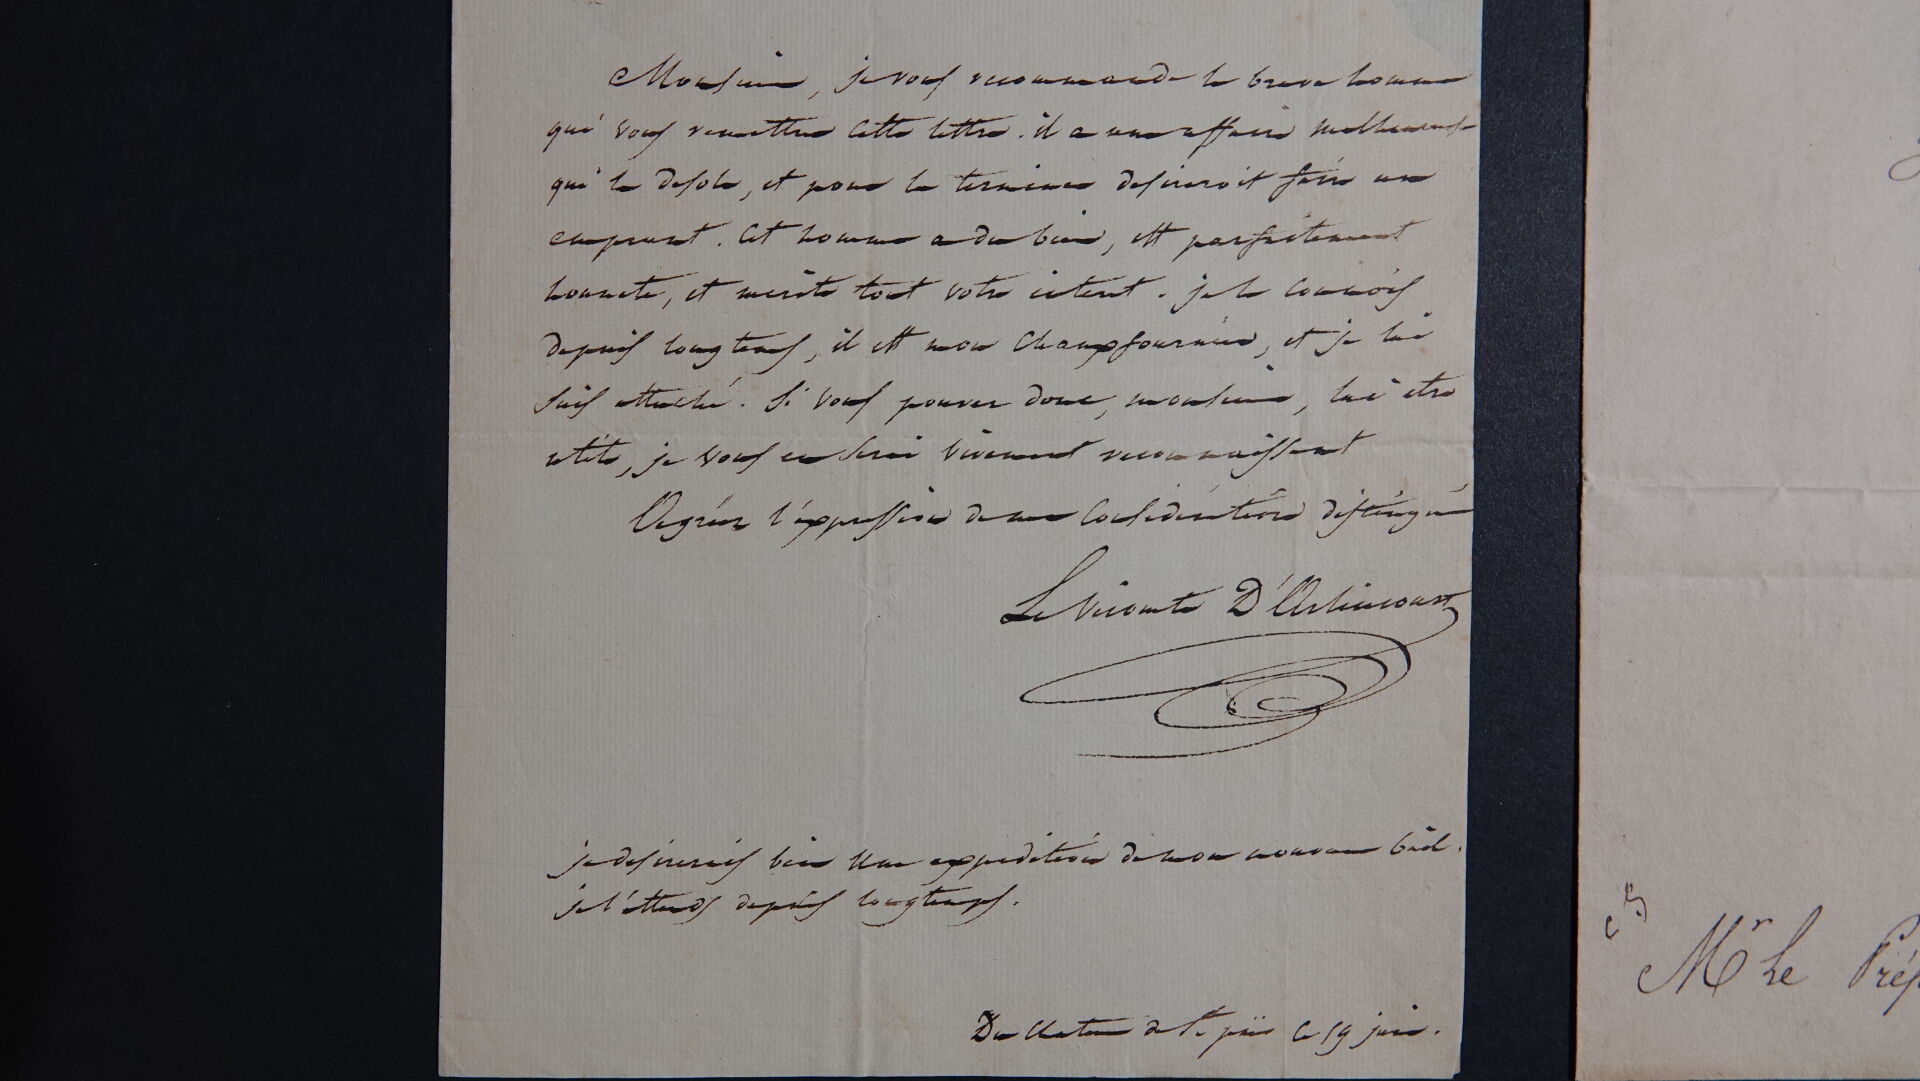 Monsieur, je vous recommande le brave homme
qui vous remettra cette lettre. il a une affaire malheureuse
qui le desole, et pour la terminer desireroit faire un
emprunt. Cet homme a du bien, est parfaitement
honnete, et merite tout votre interet. je le connois
depuis longtems, il est mon Champfournier, et je lui
suis attaché. Si vous pouvez donc, monsieur, lui etre
utile, je vous en serai vivement reconnaissant
Agréez l'expression de ma consideration distinguée
Le Vicomte D'Arlincourt
je desirerais bien une expedition de mon nouveau bail.
je l'attends depuis longtemps.
Du chateau de St. le 19 juin.
Mr Le